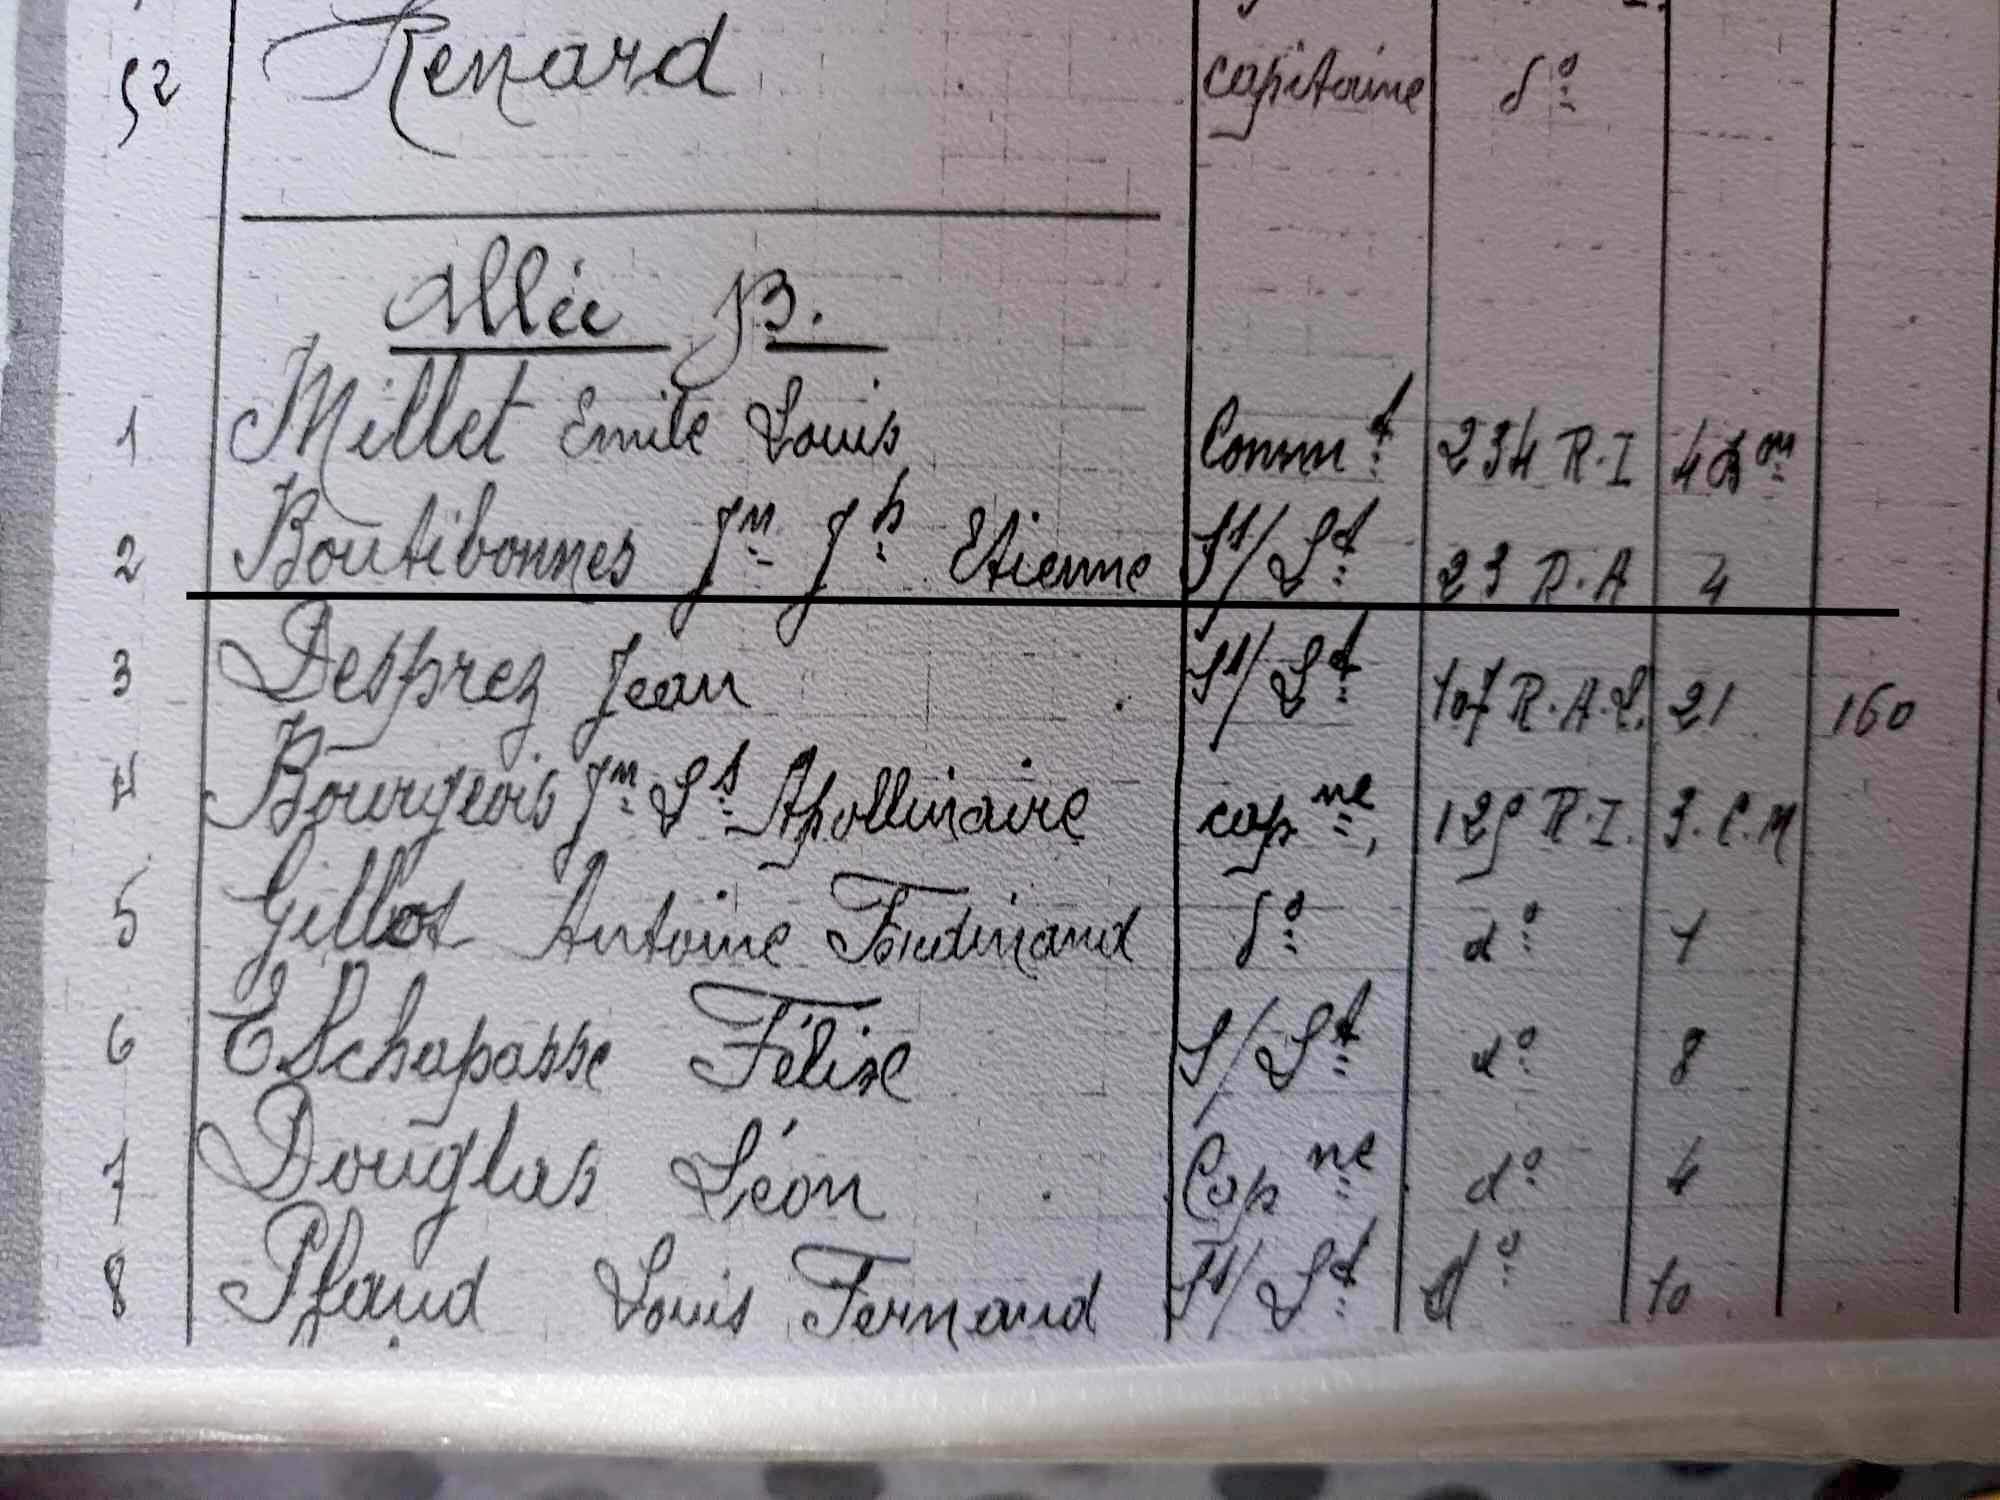 52 Renard capitaine dº
Allée B.
1 Millet Emile Louis Commt 234 R.I 4 Bon
2 Boutibonnes Jn Jh Etienne St/Lt 23 R.A 4
3 Desprez Jean St/Lt 107 R.A.L. 21 160
4 Bourgeois Jn Ls Apollinaire capne, 129 R.I. 3. C.M
5 Gillot Antoine Ferdinand dº dº 1
6 Eschapasse Félix S/Lt dº 8
7 Douglas Léon Capne dº 4
8 Pfaud Louis Fernand St/Lt dº 10